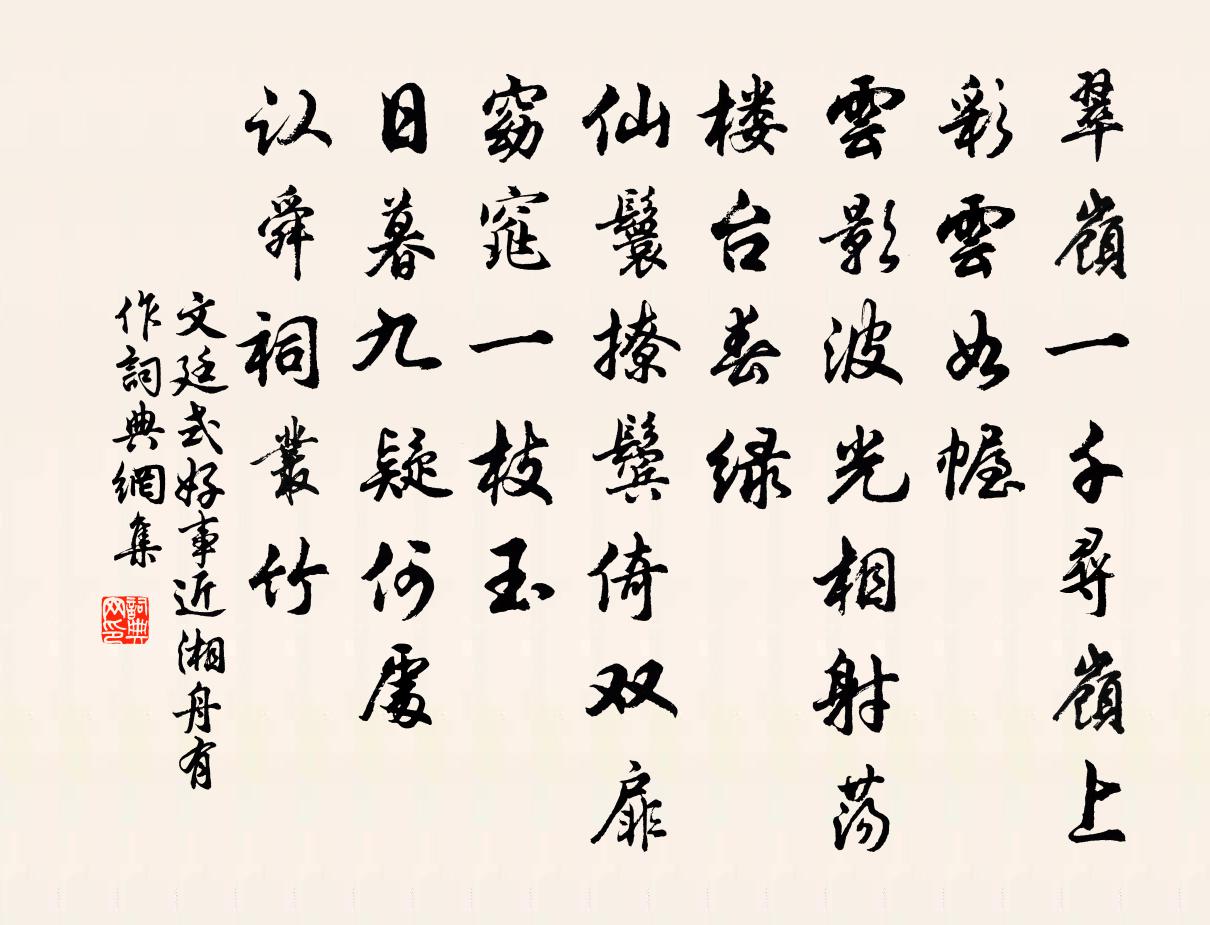 翠嶺一千尋嶺上
彩雲如幄
雲影波光相射蕩
楼台春绿
仙鬟撩鬓倚双扉
窈窕一枝玉
日暮九疑何處
认舜祠叢竹
文廷式好事近湘舟有
作詞典網集
詞典
网印